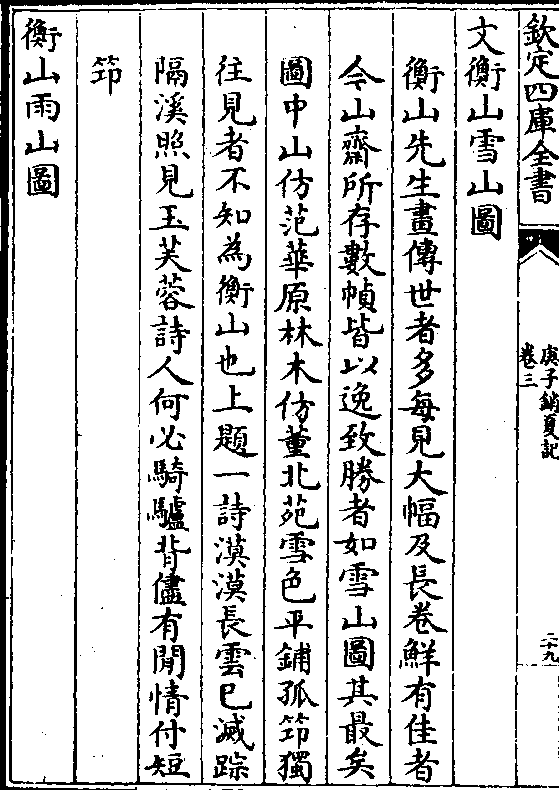 欽定四庫全書
庚子銷夏記
卷三
二十九
文衡山雪山圖
衡山先生畫傳世者多每見大幅及長卷鮮有佳者
今山齋所存數幀皆以逸致勝者如雪山圖其最矣
圖中山仿范華原林木仿董北苑雪色平鋪孤筇獨
往見者不知為衡山也上題一詩漠漠長雲已滅踪
隔溪照見玉芙蓉詩人何必騎驢背儘有閒情付短
筇
衡山雨山圖